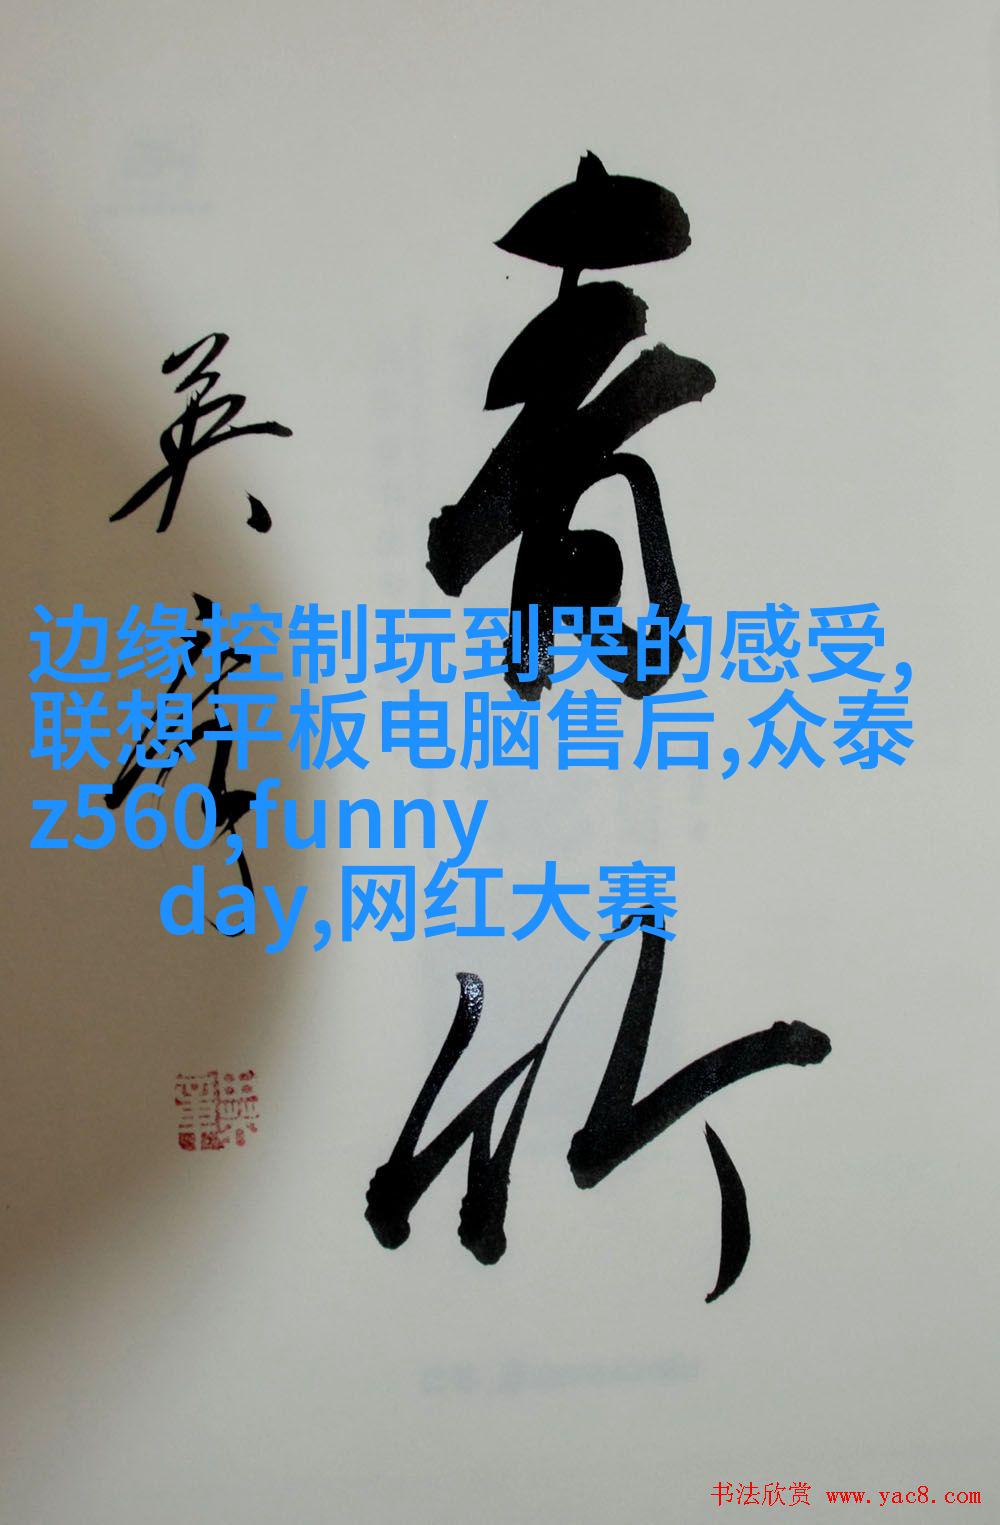 青竹
英彦
边缘控制玩到哭的感受,
联想平板电脑售后,众泰
z560,funny
day,网红大赛
书法欣赏 www.yac8.com